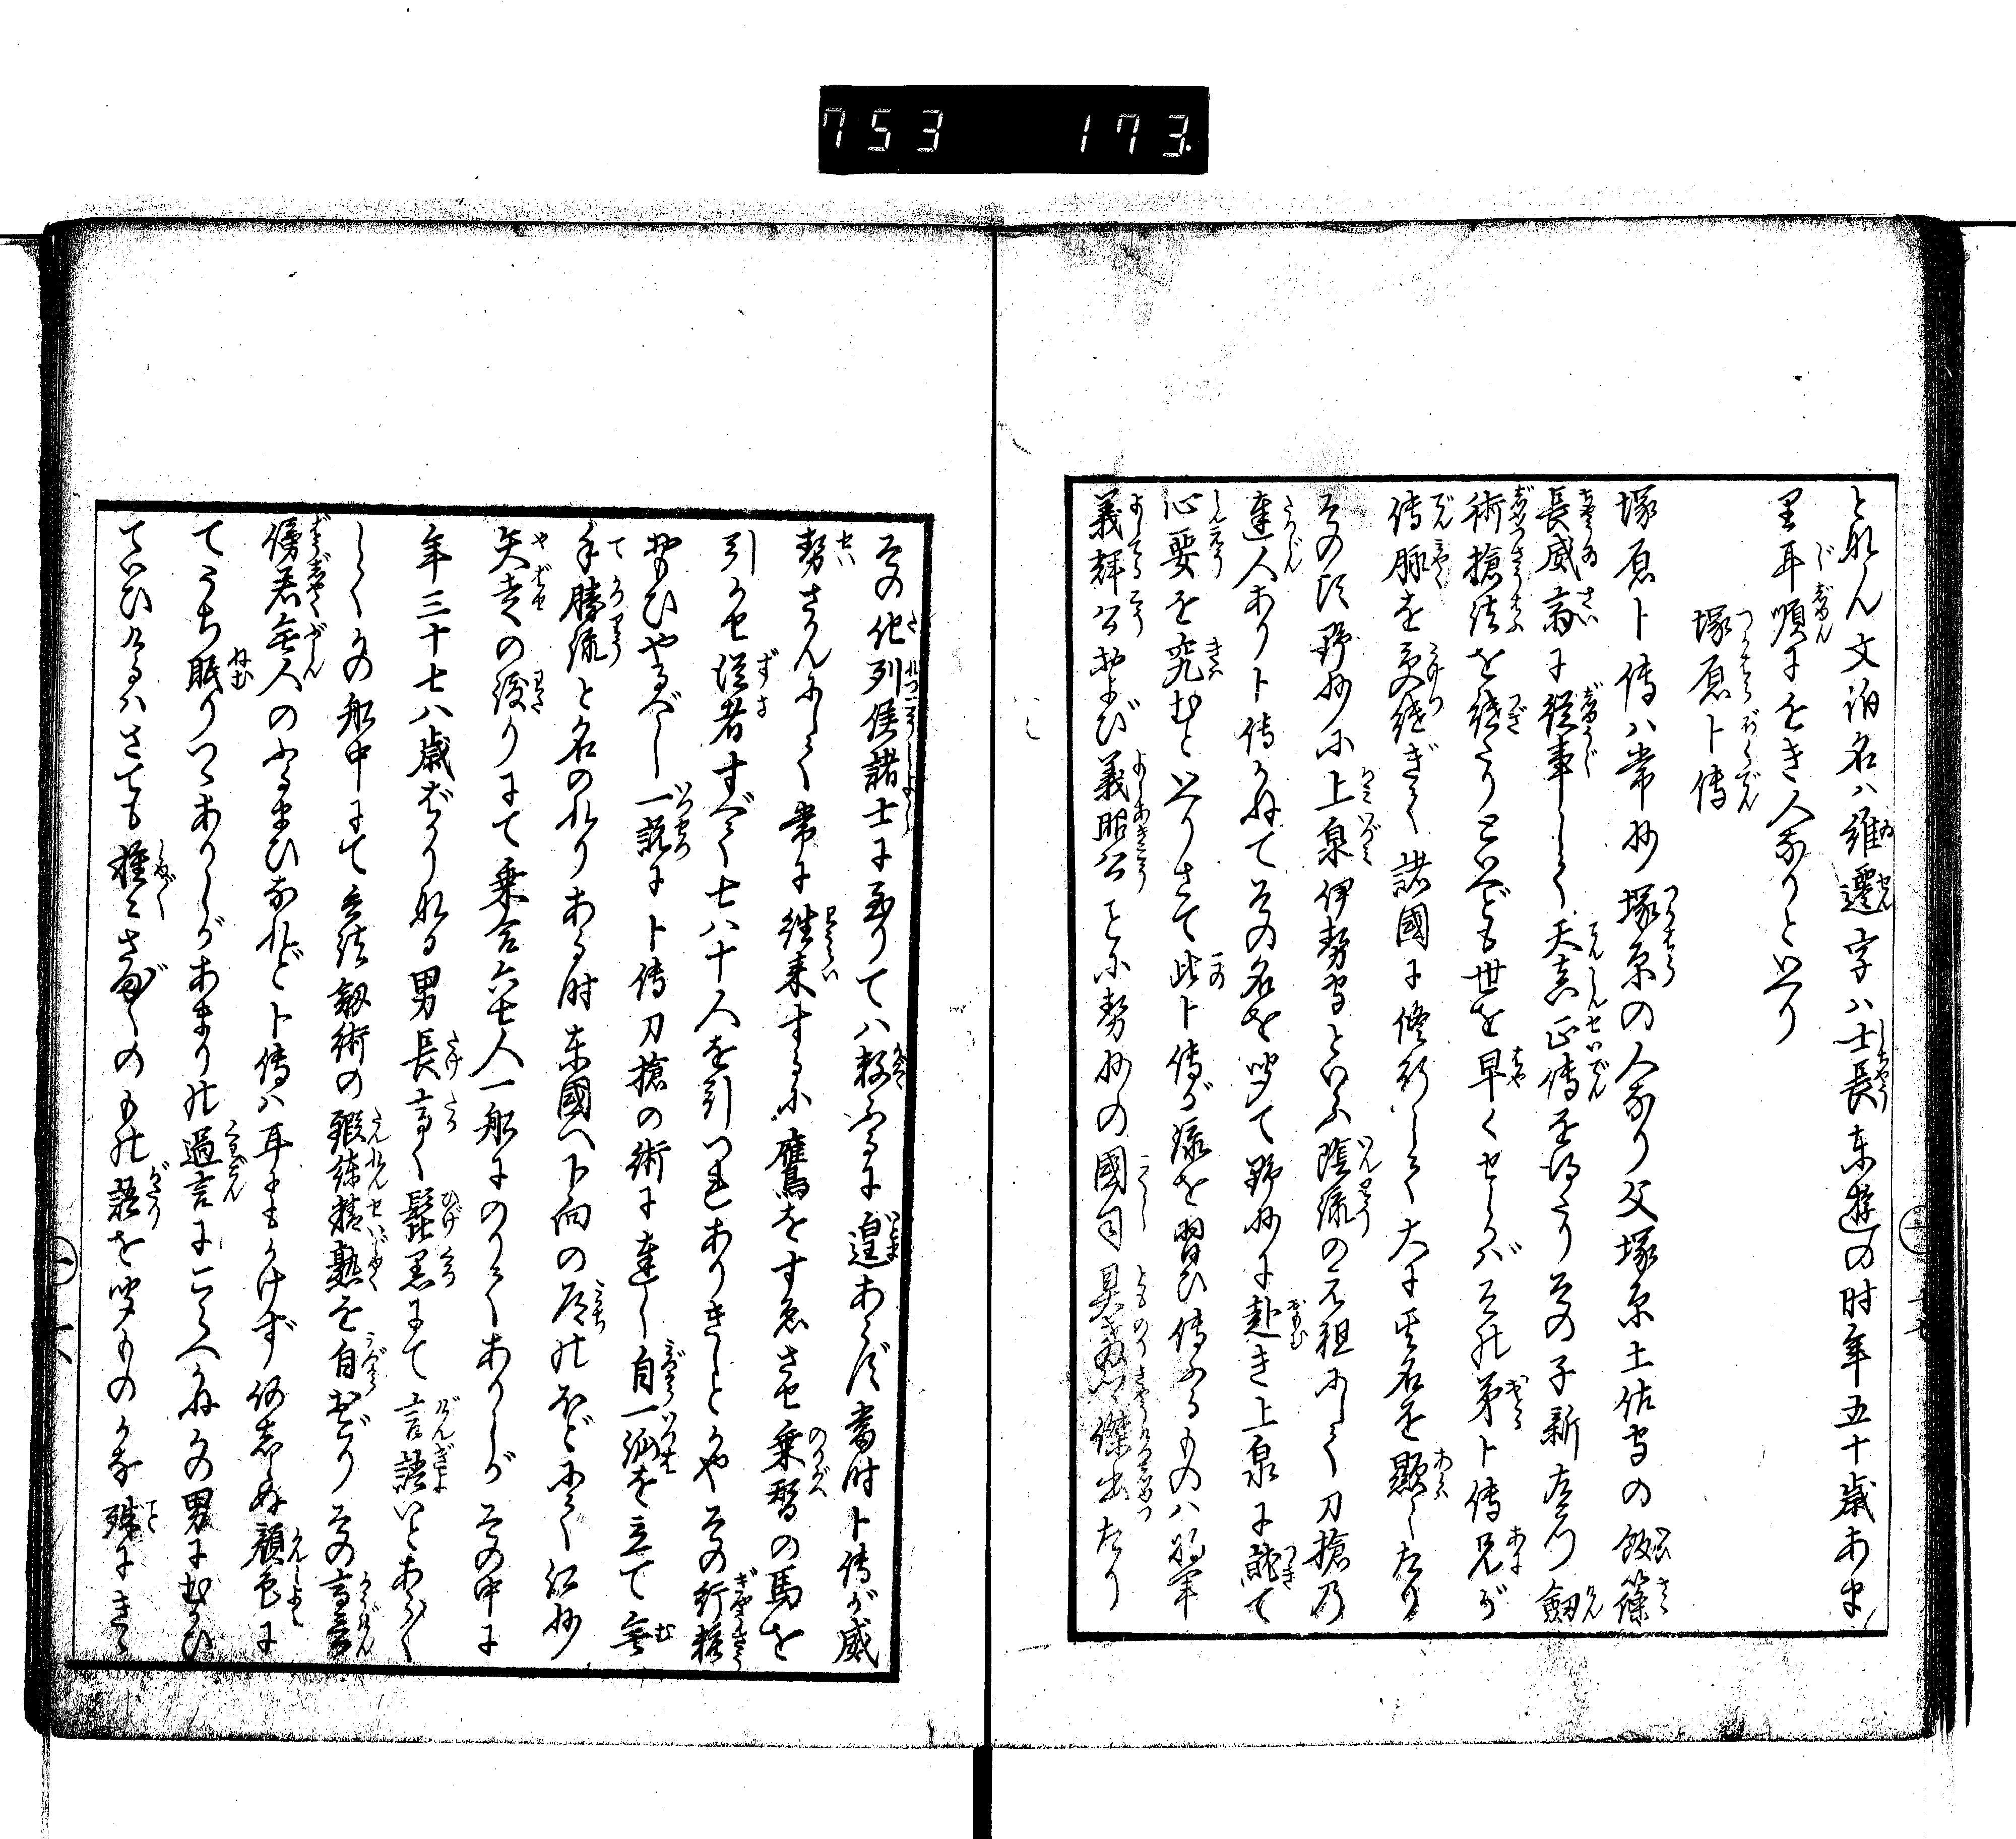 753 173.
となん文泊名ハ維遷字ハ士長東遊の时年五十歳あま
里耳順にちかき人なりといへり
塚原卜傳
塚原卜傳ハ常州塚原の人なり父塚原土佐守の飯篠
長威斎に従事して天真正傳を得たりその子新左衛門劔
術槍法を継たりといへども世を早くせしかバその弟卜傳兄が
傳脉を受継ぎて諸國に修行して大に其名を顕したり
その頃野州に上泉伊勢守といふ陰流の元祖にして刀槍の
達人あり卜傳かねてその名を聞て野州に赴き上泉に就て
心要を究むといへりさて此卜傳が流を習ひ傳ふるものハ将軍
義輝公および義昭公ことに勢州の國司具教ハ傑出たり
その他列侯諸士に至りてハ数ふるに遑あらず當时卜傳が威
勢さかんにして常に往来するに鷹をすゑさせ乗替の馬を
引かせ従者すべて七八十人を引つれありきしとかやその行粧
おもひやるべし一説に卜傳刀槍の術に達し自一派を立て無
手勝流と名のれりある时東國へ下向の道のほどにて江州
矢走の渡りにて乗合六七人一舩にのりてありしがその中に
年三十七八歳ばかりなる男長高く髭黒にて言語いとあらく
しくかの舩中にて兵法劔術の鍛練精熟を自おごりその高言
傍若無人のふるまひなれど卜傳ハ耳にもかけず何志らぬ顔色に
てうち眠りつゝありしがあまりの過言にこらへかねかの男にむかひ
ていひけるハさても種々さまざまのもの語を聞ものかな殊にきゝ